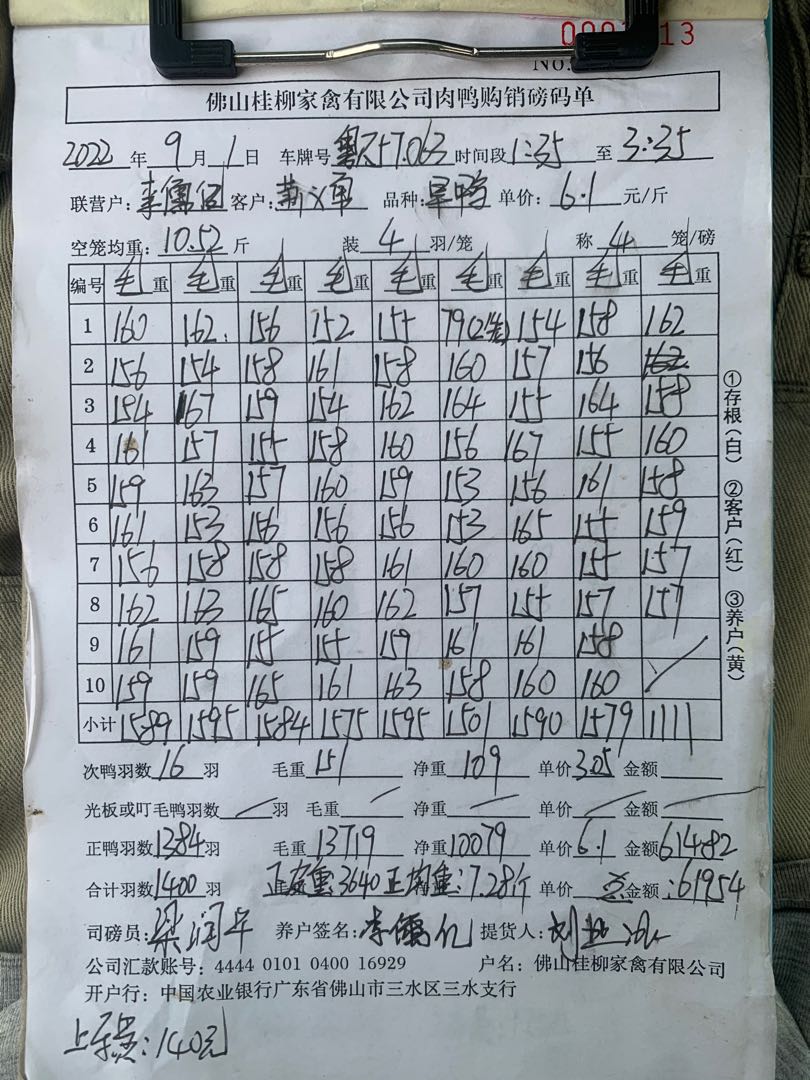 13
No.
佛山桂柳家禽有限公司肉鸭购销磅码单
2022 年 9 月 1 日 车牌号 时间段 1:35 至 3:35
联营户: 李 客户: 品种: 旱鸭 单价: 6.1 元/斤
空笼均重: 10.52 斤 装 4 羽/笼 称 4 笼/磅
编号 毛重 毛重 毛重 毛重 毛重 毛重 毛重 毛重 毛重
1 160 162 156 152 155 79(2笼) 154 158 162
2 156 154 158 161 158 160 157 156
3 154 167 159 154 162 164 155 164 158
4 161 157 155 158 160 156 167 155 160
5 159 163 157 160 159 153 156 161 158
6 161 153 156 156 156 153 165 155 159
7 156 158 158 158 161 160 160 155 157
8 162 163 165 160 162 157 155 157 157
9 161 159 155 155 159 161 161 158
10 159 159 165 161 163 158 160 160
小计 1589 1595 1584 1575 1595 1501 1590 1579 1111
次鸭羽数 16 羽 毛重 151 净重 109 单价 3.05 金额
光板或叮毛鸭羽数 羽 毛重 净重 单价 金额
正鸭羽数 1384 羽 毛重 13719 净重 10079 单价 6.1 金额 61482
合计羽数 1400 羽 正空重: 3640 正均重: 7.28斤 单价 金额: 61954
司磅员: 梁润 养户签名: 李 提货人: 刘
公司汇款账号: 4444 0101 0400 16929 户名: 佛山桂柳家禽有限公司
开户行: 中国农业银行广东省佛山市三水区三水支行
上车费: 140元
①存根(白) ②客户(红) ③养户(黄)